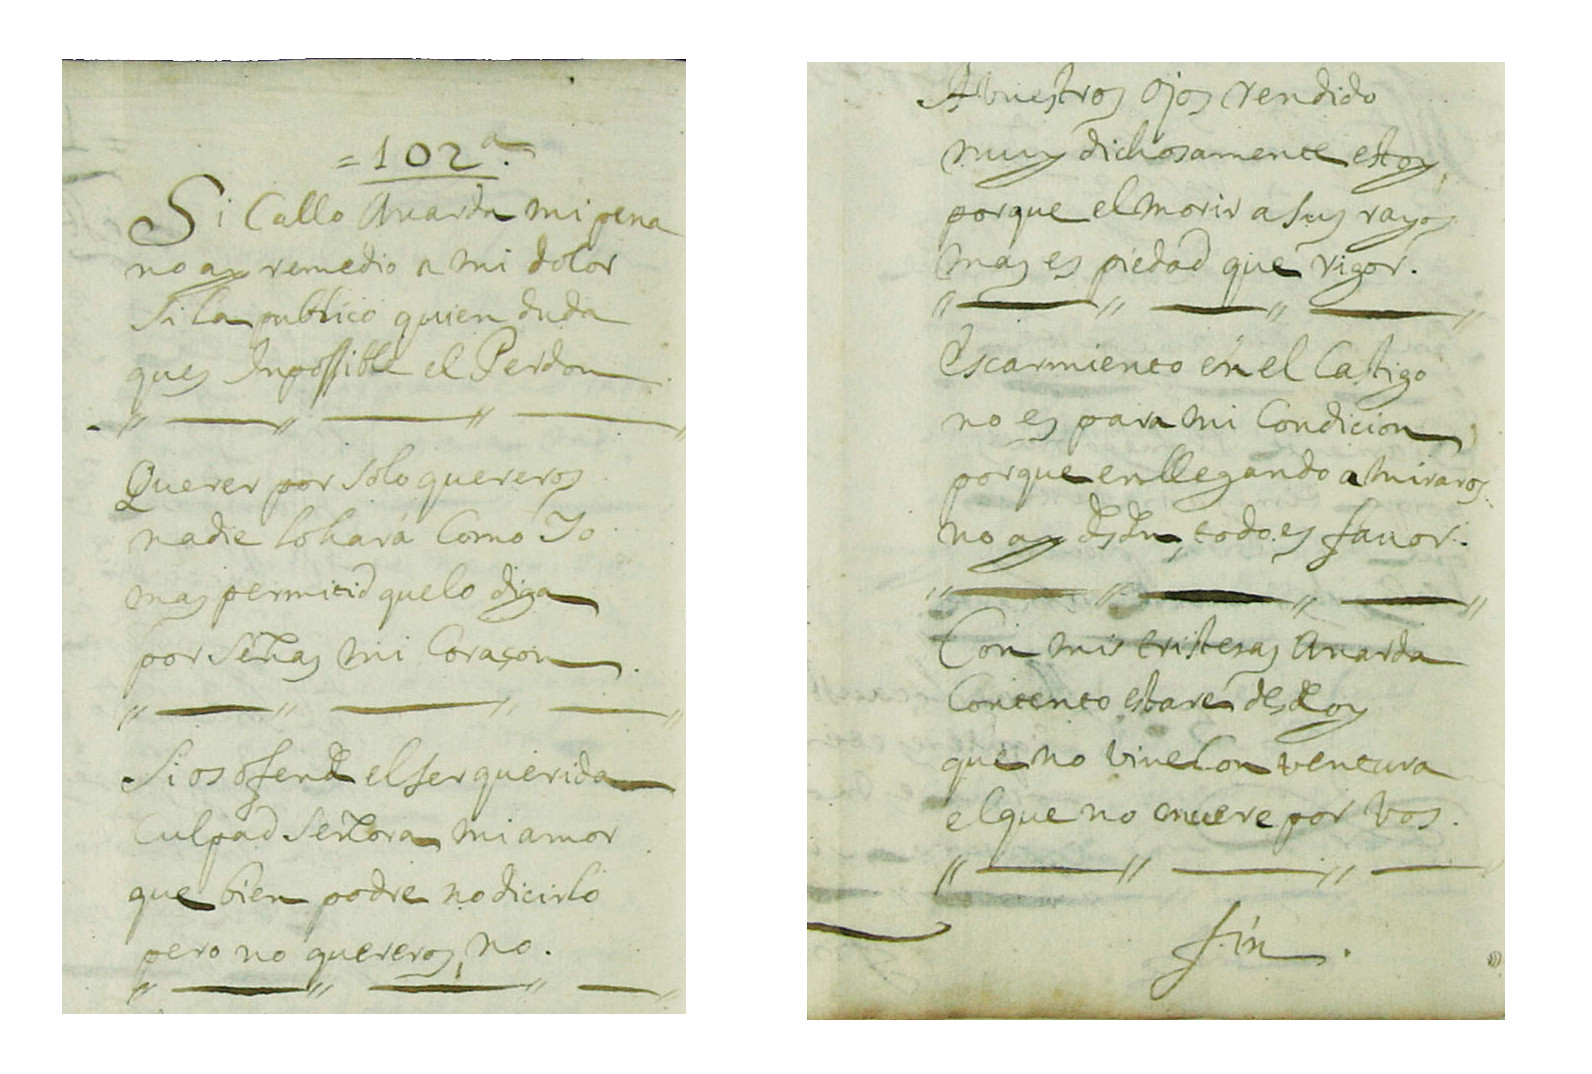 =102ª.
Si Callo Anarda mi pena
no ay remedio a mi dolor
Si la publico quien duda
ques Inpossible el Perdon
Querer por solo quereros
nadie lo hará Como Yo
mas permitid que lo diga
por señas mi Coraçon.
Si os ofende el ser querida
Culpad Señora mi amor
que bien podre no dicirlo
pero no quereros, no.
A vuestros ojos rendido
muy dichosamente estoy,
porque el morir a sus rayos
mas es piedad que rigor.
Escarmiento en el Castigo
no es para mi Condicion
porque en llegando a miraros
no ay desden, todo es fauor.
Con mis tristesas Anarda
Contento estaré desde oy
que no viue Con ventura
el que no muere por vos.
fin.